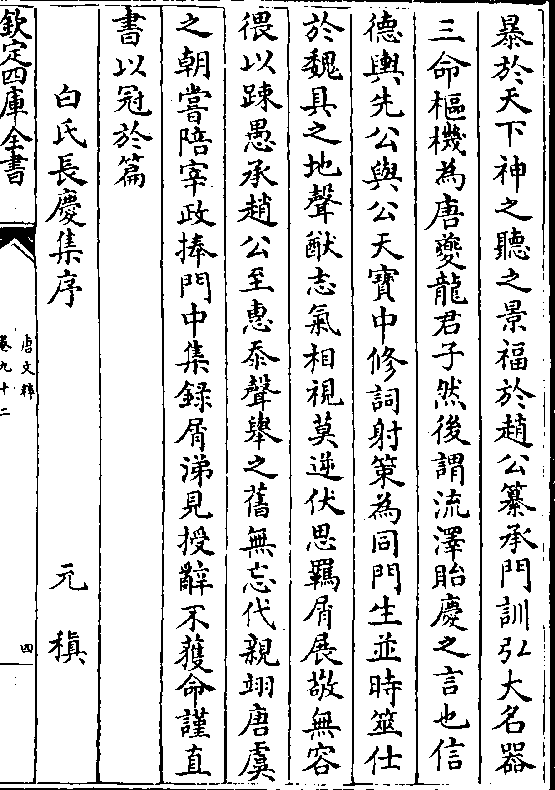 暴於天下神之聽之景福於趙公纂承門訓弘大名器
三命樞機為唐夔龍君子然後謂流澤貽慶之言也信
德輿先公與公天寶中修詞射策為同門生並時筮仕
於魏具之地聲猷志氣相視莫逆伏思羈屑展敬無容
猥以踈愚承趙公至惠忝聲舉之舊無忘代親翊唐虞
之朝嘗陪宰政捧門中集錄屑涕見授辭不獲命謹直
書以冠於篇
白氏長慶集序 元稹
欽定四庫全書
唐文粹
卷九十二
四